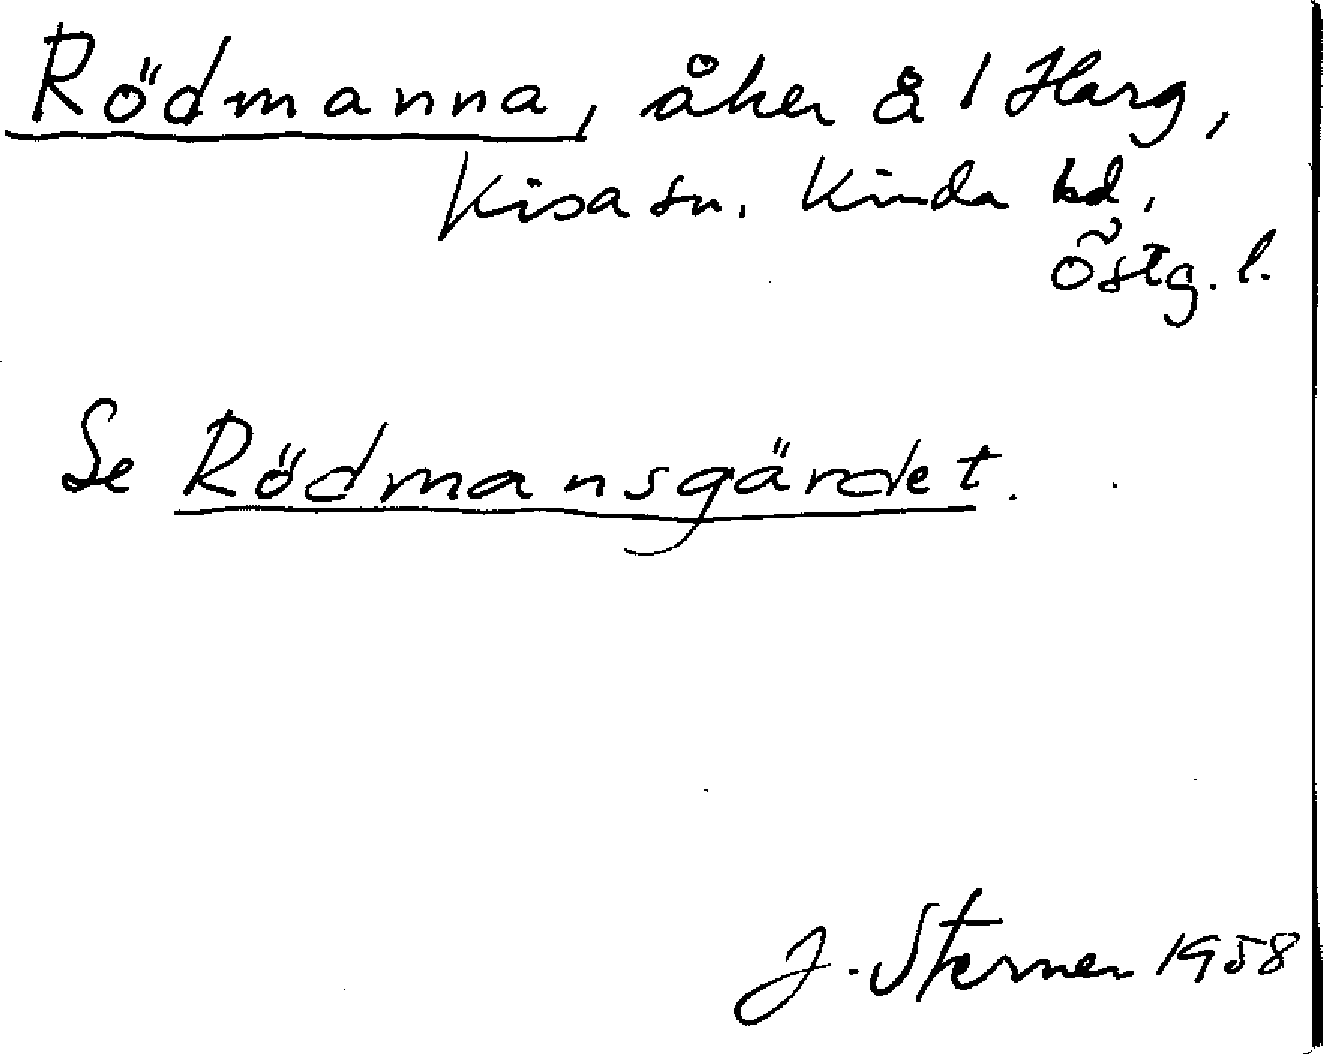 Rödmanna, åker å 1 Harg,
Kisa sn. Kinda hd,
Östg. l.
Se Rödmansgärdet.
J. Sterner 1958